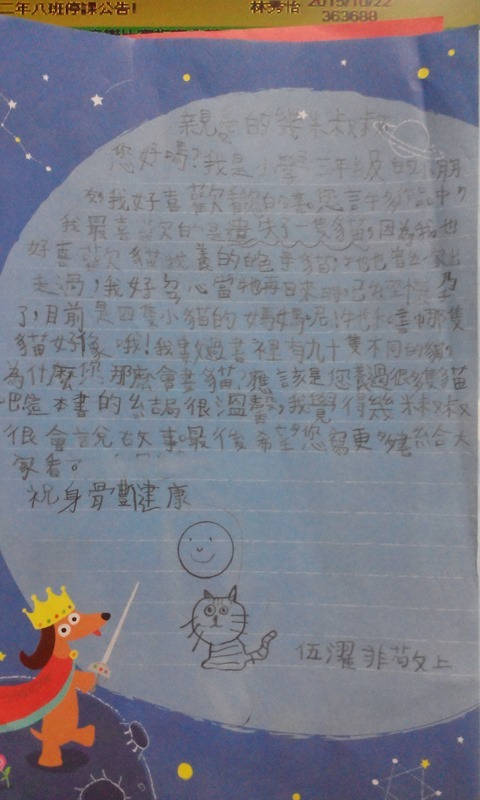 二年八班停課公告!
林秀怡 2015/10/22
363688
親愛的幾米叔叔
您好嗎?我是小學三年級的小朋
友我好喜歡看您的書。您許多作品中,
我最喜歡的是遺失了一隻貓,因為我也
好喜歡貓我養的
走過,我好傷心當牠再回來時,已經懷孕
了,目前是四隻小貓的媽媽呢!
貓好像哦!我數過書裡有九十隻不同的貓,
為什麼您那麼會畫貓?應該是您養過很多隻貓
吧這本書的結局很溫馨,我覺得幾米叔叔
很會說故事。最後希望您寫更多書給大
家看。
祝身體健康
伍濯非敬上